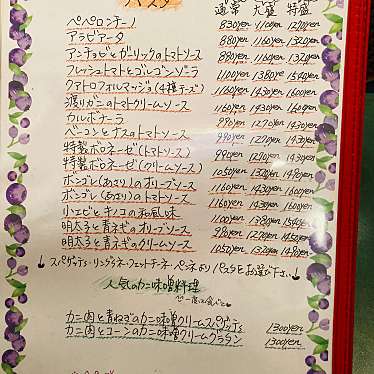 パスタ
通常 大盛 特盛
ペペロンチーノ 830yen 1100yen 1270yen
アラビアータ 880yen 1160yen 1320yen
アンチョビとガーリックのトマトソース 880yen 1160yen 1320yen
フレッシュトマトとゴルゴンゾーラ 1100yen 1380yen 1540yen
クアトロフォルマッジョ(4種チーズ) 1160yen 1430yen 1600yen
渡りガニのトマトクリームソース 1160yen 1430yen 1600yen
カルボナーラ 990yen 1270yen 1430yen
ベーコンとナスのトマトソース 990yen 1270yen 1430yen
特製ボロネーゼ(トマトソース) 990yen 1270yen 1430yen
特製ボロネーゼ(クリームソース) 1050yen 1320yen 1480yen
ボンゴレ(あさり)のオリーブソース 1160yen 1270yen 1600yen
ボンゴレ(あさり)のトマトソース 1160yen 1430yen 1600yen
小エビとキノコの和風味 1100yen 1380yen 1540yen
明太子と青ネギのオリーブソース 990yen 1270yen 1430yen
明太子と青ネギのクリームソース 1050yen 1320yen 1480yen
スパゲッティ・リングイネ・フェットチーネ・ペンネよりパスタをお選び下さい
人気のカニ味噌料理
一度は食べて
カニ肉と青ねぎのカニ味噌クリームスパゲッティ 1300yen
カニ肉とコーンのカニ味噌クリームグラタン 1300yen